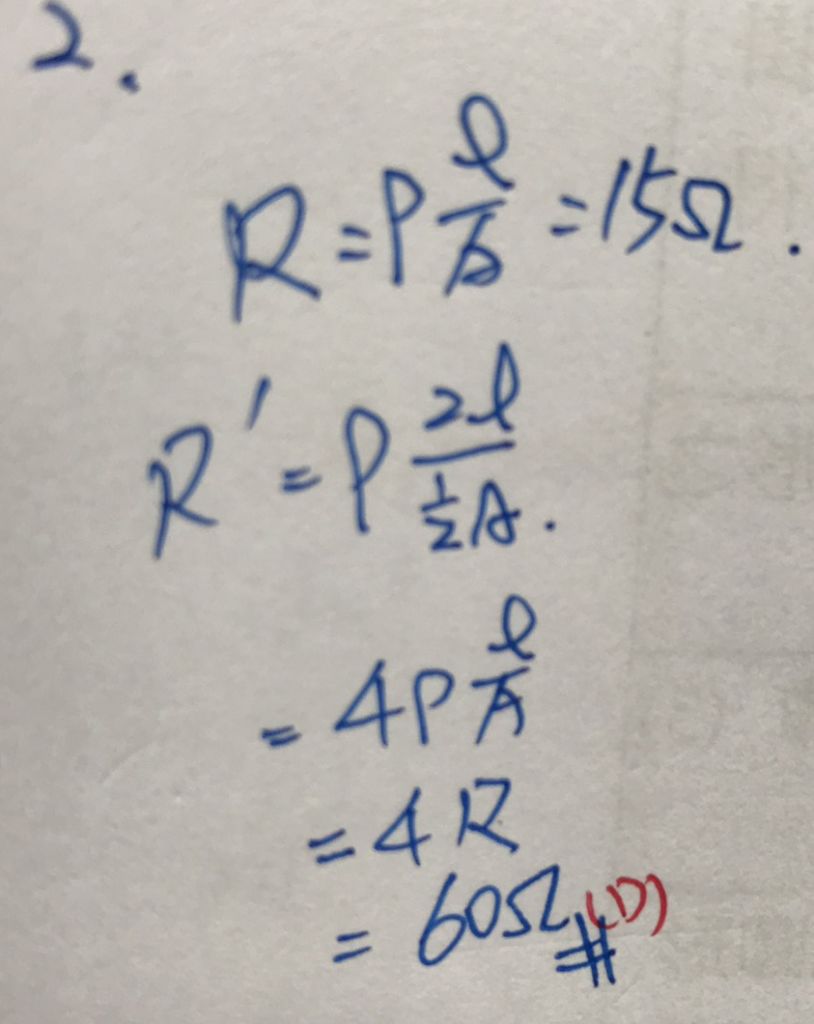 2.
R = ρ ℓ/A = 15Ω.
R' = ρ 2ℓ/(1/2 A).
= 4ρ ℓ/A
= 4R
= 60Ω # (D)